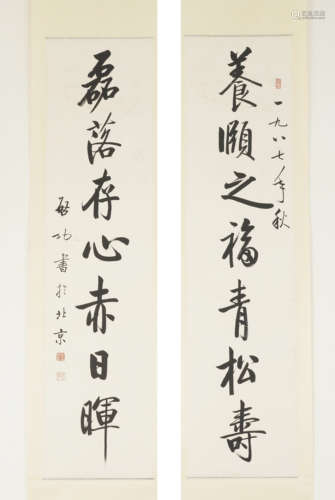 養頤之福青松壽
一九八七年秋
磊落存心赤日暉
啟功書於北京